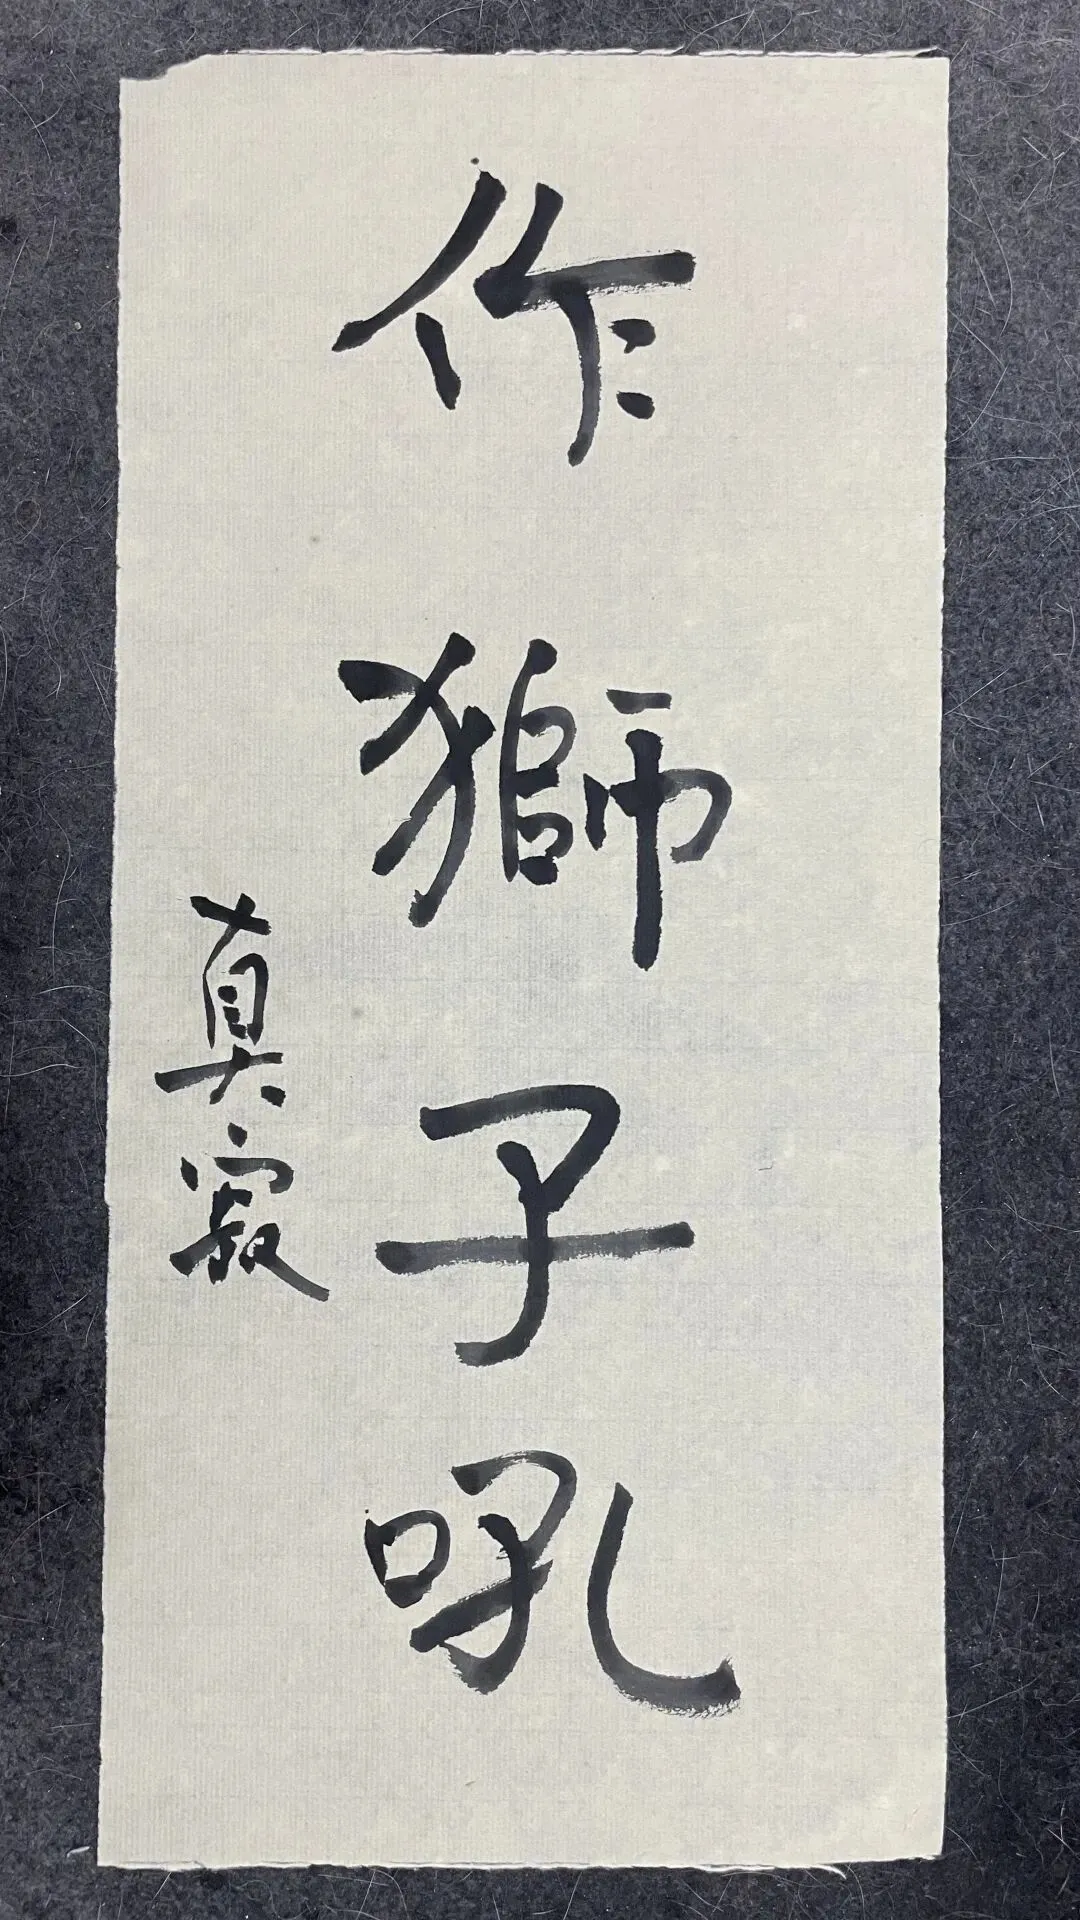 作獅子吼
真寂